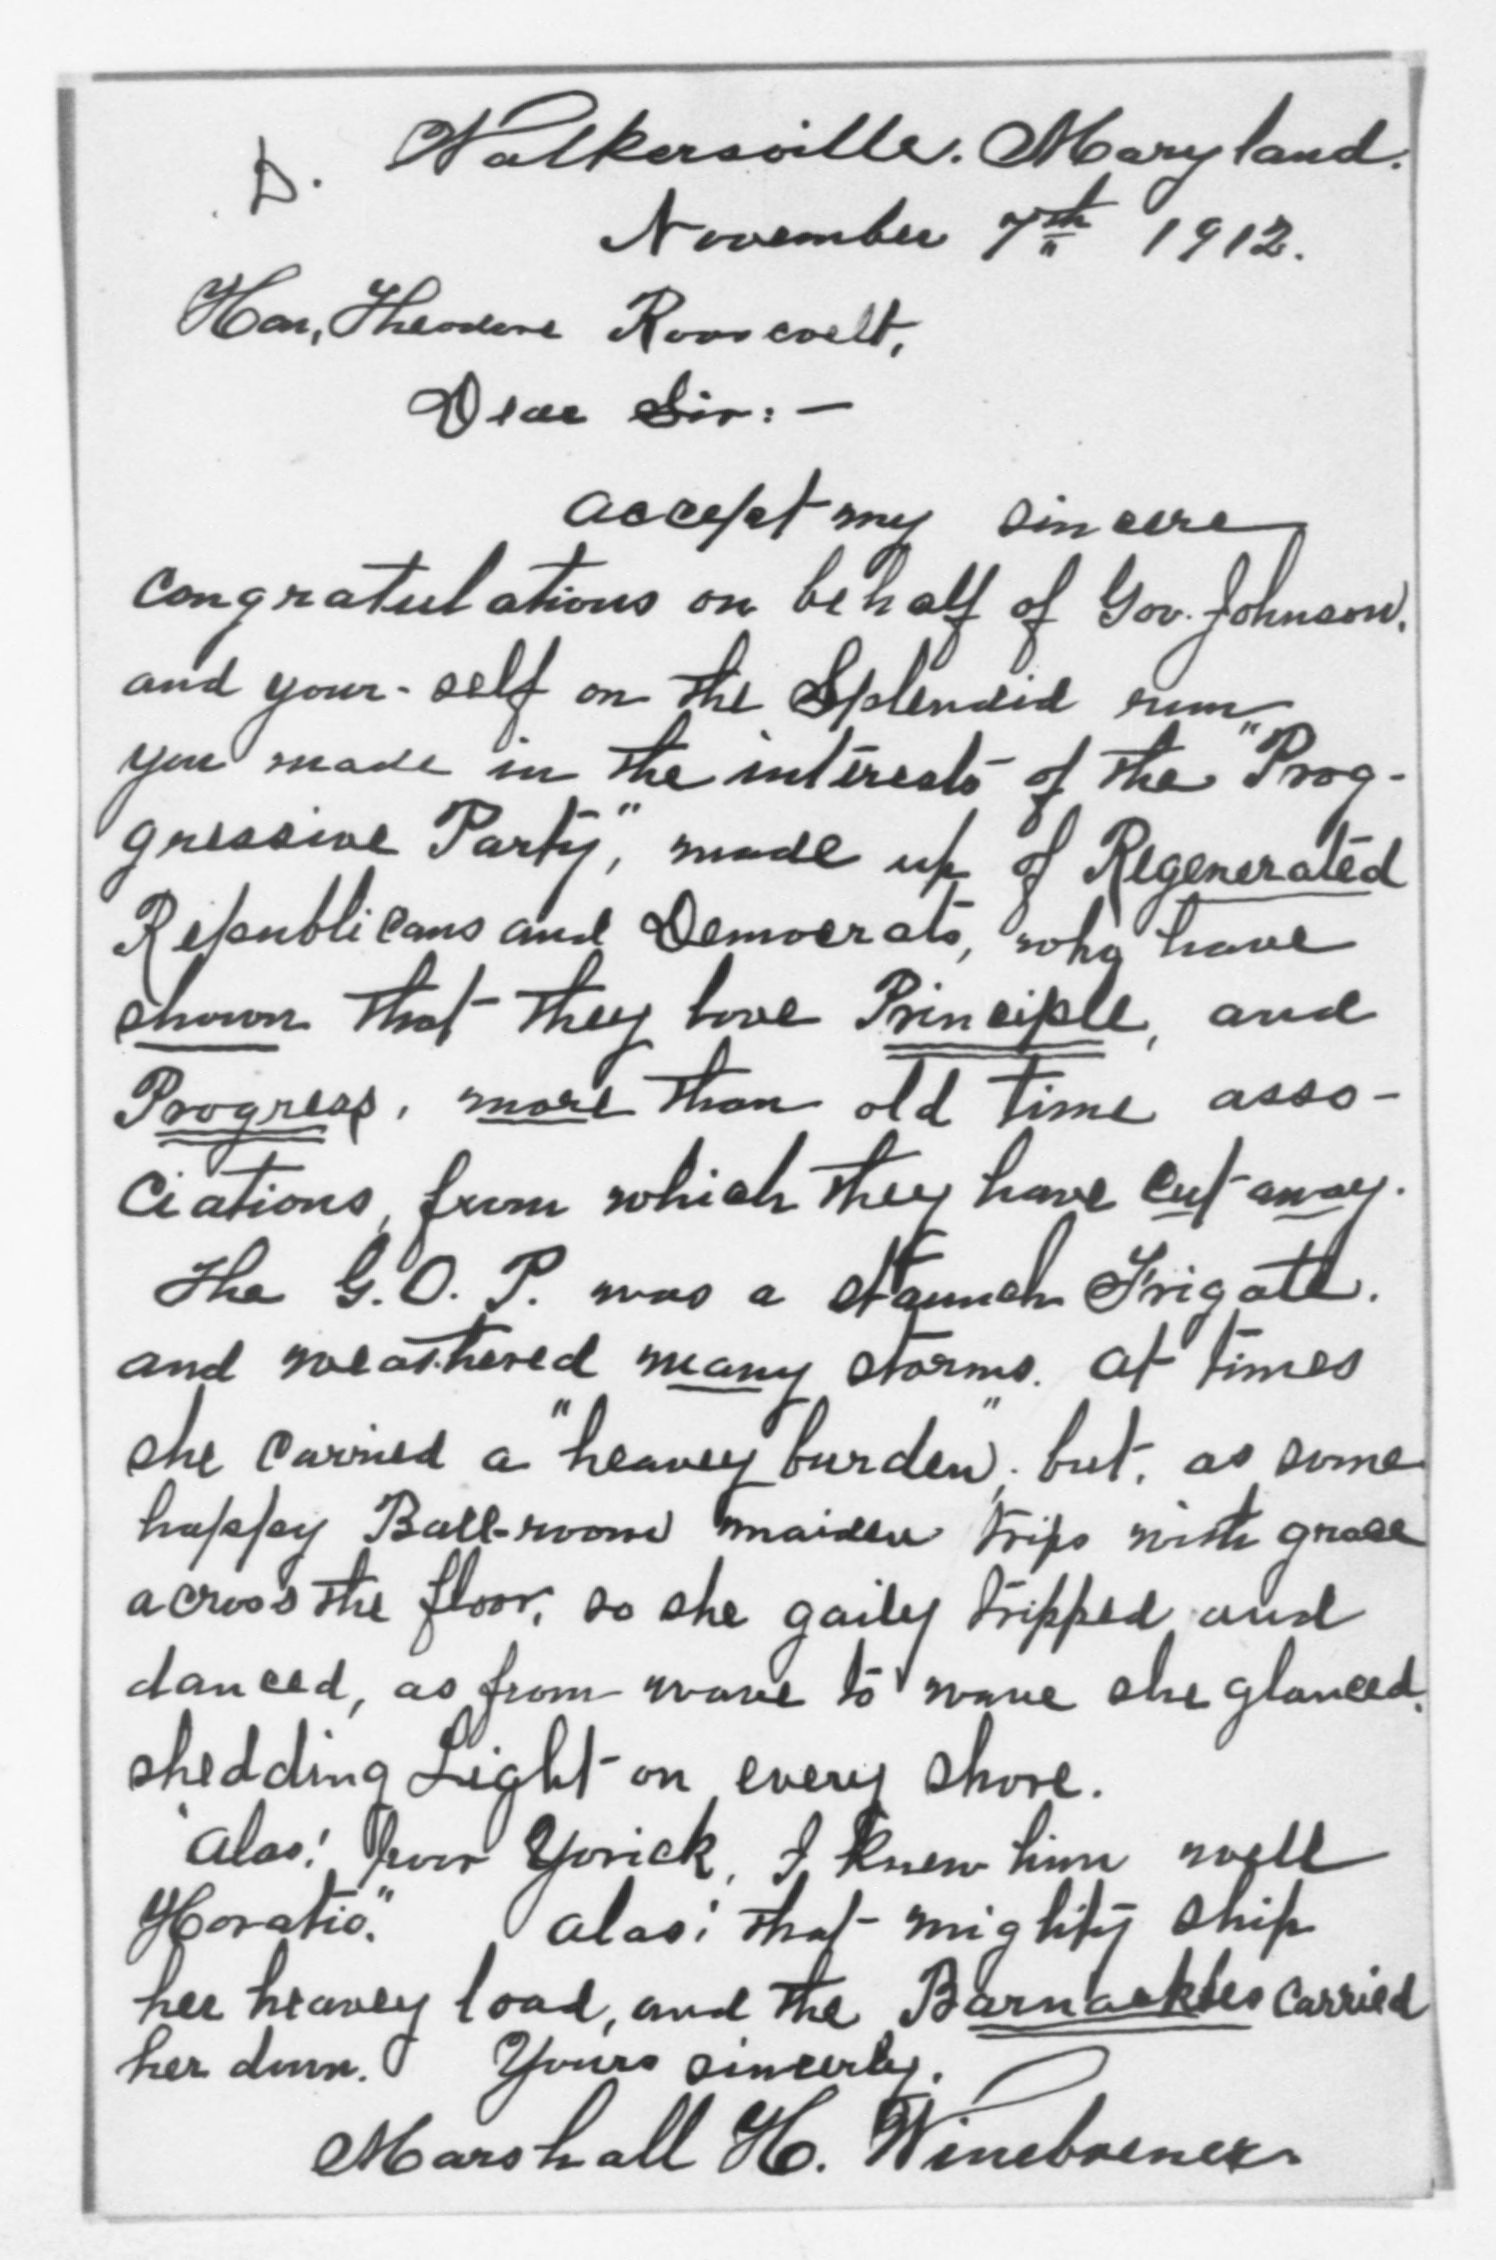 Walkersville. Maryland.
D.
November 7th 1912.
Hon, Theodore Roosevelt,
Dear Sir:—
accept my sincere
congratulations on behalf of Gov. Johnson.
and your-self on the Splendid run
you made in the interests of the "Prog-
gressive Party," made up of Regenerated
Republicans and Democrats, who have
shown that they love Principle, and
Progress, more than old time asso-
ciations, from which they have cut away.
The G.O.P. was a staunch Frigate.
and weathered many storms. at times
she carried a "heavy burden", but, as some
happy Ball-room maiden trips with grace
across the floor, so she gaily tripped and
danced, as from wave to wave she glanced.
shedding Light on every shore.
"alas! poor Yorick, I knew him well
Horatio." alas! that mighty ship
her heavy load, and the Barnackles carried
her down. Yours sincerly.
Marshall H. Winebrener